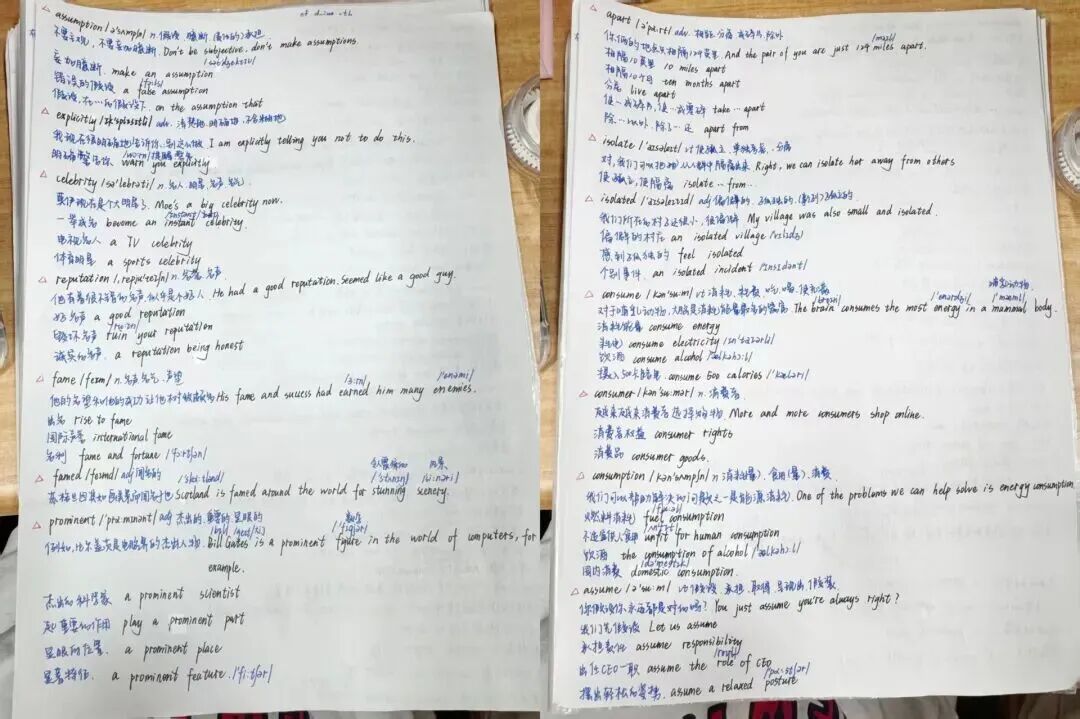 of doing sth
△ assumption /ə'sʌmpʃn/ n. 假设 臆断 (责任的)承担.
不要主观, 不要妄加臆断. Don't be subjective, don't make assumptions.
/səbˈdʒektɪv/
妄加臆断. make an assumption
错误的假设 a false assumption
假设, 在…的假设下. on the assumption that
△ explicitly /ɪk'splɪsɪtli/ adv. 清楚地. 明确地. 不含糊地
我现在很明确地告诉你, 别这么做 I am explicitly telling you not to do this.
明确警告你. warn you explicitly
△ celebrity /sə'lebrəti/ n. 名人. 明星. 名声. 名气.
莫伊现在是个大明星了. Moe's a big celebrity now.
一举成名 become an instant celebrity.
电视名人 a TV celebrity
体育明星 a sports celebrity
△ reputation /ˌrepju'teɪʃn/ n. 名誉. 名声.
他有着很不错的名声. 似乎是个好人. He had a good reputation. Seemed like a good guy.
好名声 a good reputation
毁坏名声 ruin your reputation
诚实的名声. a reputation being honest
△ fame /feɪm/ n. 名声. 名气. 声望
/ɜːrn/ /'enəmi/
His fame and success had earned him many enemies.
出名 rise to fame
国际声誉 international fame
名利 fame and fortune /'fɔːrtʃən/
△ famed /feɪmd/ adj 闻名的 /'skɑːtlənd/ /'stʌnɪŋ/ /'siːnəri/
苏格兰因其如画美景而闻名于世 Scotland is famed around the world for stunning scenery.
△ prominent /'prɑːmɪnənt/ adj 杰出的. 重要的. 显眼的 /'fɪɡjər/
例如, 比尔盖茨是电脑界的杰出人物. Bill Gates is a prominent figure in the world of computers, for
example.
杰出的科学家 a prominent scientist
起重要的作用 play a prominent part
显眼的位置. a prominent place
显著特征. a prominent feature. /'fiːtʃər/
△ apart /ə'pɑːrt/ adv. 相距. 分离. 成碎片. 除外
你俩的地点只相隔124英里. And the pair of you are just 124 miles apart.
相隔10英里 10 miles apart
相隔10个月 ten months apart
分居 live apart
take … apart
除…以外. 除了…还 apart from
△ isolate /'aɪsəleɪt/ vt 使孤立. 单独考虑. 分离
对, 我们可以把她从人群中隔离出来 Right, we can isolate her away from others
使孤立, 使隔离 isolate … from …
△ isolated /'aɪsəleɪtɪd/ adj 偏僻的. 孤独的. 孤立的
我们所在的村子还很小, 很偏僻 My village was also small and isolated.
偏僻的村庄 an isolated village /'vɪlɪdʒ/
感到孤独的 feel isolated
个别事件. an isolated incident /'ɪnsɪdənt/
△ consume /kən'suːm/ vt 消耗. 耗费. 吃. 喝. 哺乳动物.
/breɪn/ /'enərdʒi/ /'mæml/
对于哺乳动物, 大脑是消耗能量最多的器官. The brain consumes the most energy in a mammal body.
消耗能量 consume energy
耗电 consume electricity
饮酒 consume alcohol /'ælkəhɔːl/
摄入500卡路里. consume 500 calories /'kæləri/
△ consumer /kən'suːmər/ n. 消费者.
越来越多消费者选择网购物. More and more consumers shop online.
消费者权益 consumer rights
消费品 consumer goods.
△ consumption /kən'sʌmpʃn/ n 消耗(量). 食用(量). 消费
我们可以帮助解决的问题之一是能源消耗. One of the problems we can help solve is energy consumption
燃料消耗 fuel consumption
不适宜供人食用 unfit for human consumption
饮酒 the consumption of alcohol /'ælkəhɔːl/
国内消费 domestic consumption.
△ assume /ə'suːm/ vt 假设. 承担. 取得. 呈现出. 假装.
你假设你永远都是对的吗? You just assume you're always right?
我们先假设 Let us assume
承担责任 assume responsibility
出任CEO一职 assume the role of CEO
摆出轻松的姿势. assume a relaxed posture